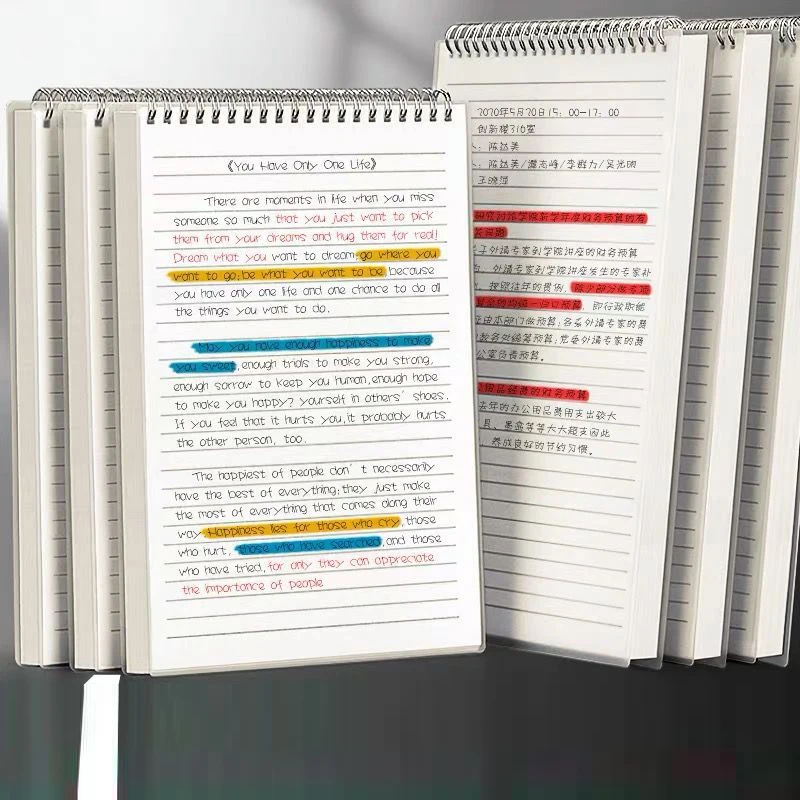 《You Have Only One Life》
There are moments in life when you miss
someone so much that you just want to pick
them from your dreams and hug them for real!
Dream what you want to dream;go where you
want to go;be what you want to be because
you have only one life and one chance to do all
the things you want to do.
May you have enough happiness to make
you sweet,enough trials to make you strong,
enough sorrow to keep you human,enough hope
to make you happy? yourself in others' shoes.
If you feel that it hurts you,it probably hurts
the other person, too.
The happiest of people don't necessarily
have the best of everything;they just make
the most of everything that comes along their
way.Happiness lies for those who cry,those
who hurt, those who have searched,and those
who have tried,for only they can appreciate
the importance of people
2020年5月20日15：00-17：00
创新楼316室
：陈达美
：陈达美/潘志峰/李群力/吴光明
王晓萍
研究对陈学院新学年度财务预算的有
关问题
子外请专家到学院讲座的财务预算
，外请专家到学院讲座发生的专家补
，按照往年的惯例，除少部分做专项
资金的均统一归口预算，即行政职能
在由本部门做预算；各系外请专家的费
教务处统筹预算；党委外请专家的费
公室负责预算。
公用品经费的财务预算
去年的办公用品费用支出较大
具、墨盒等等大大超支因此
，养成良好的节约习惯。